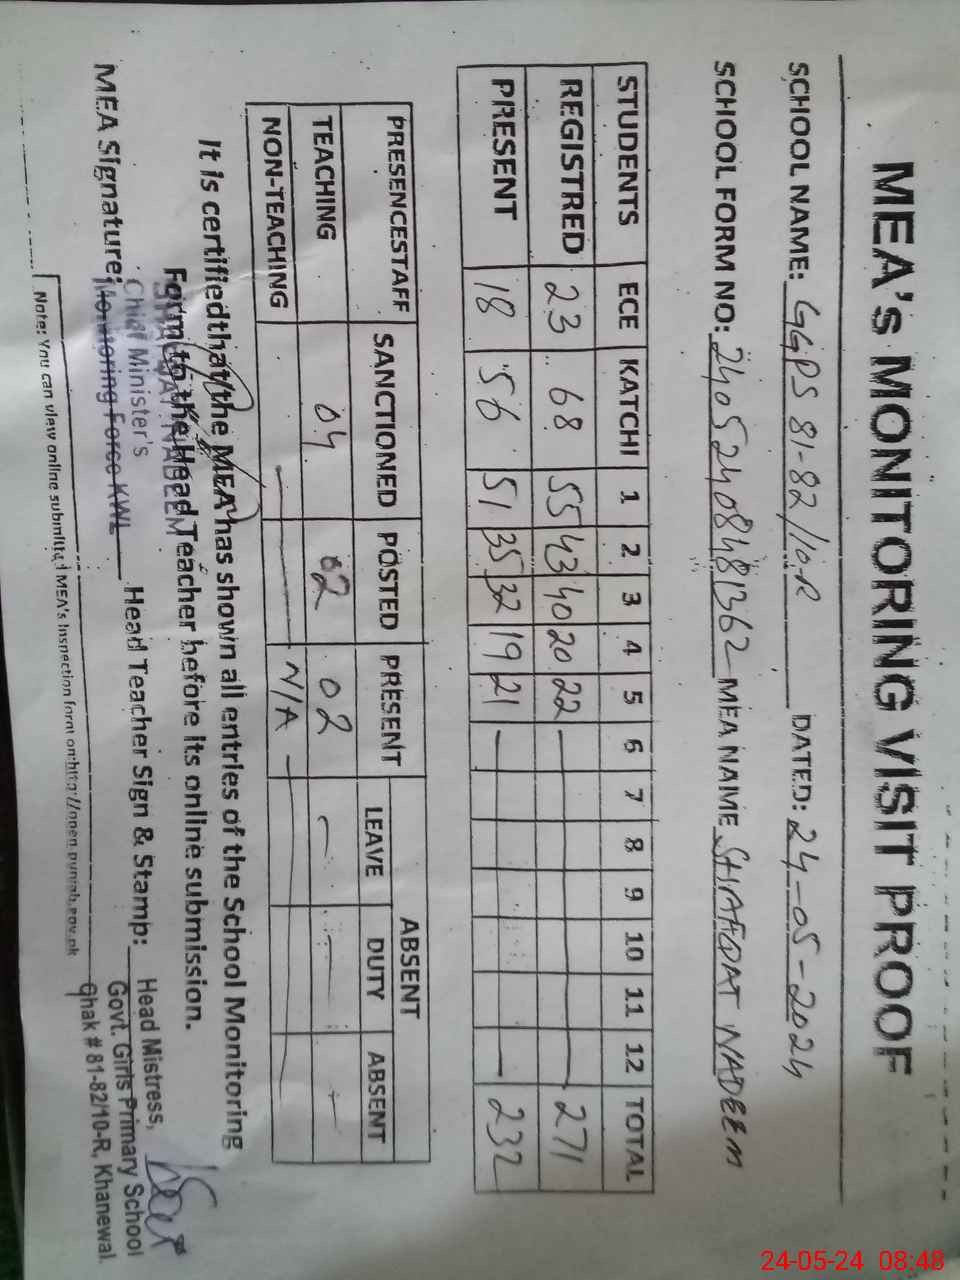 MEA's MONITORING VISIT PROOF
SCHOOL NAME: GGPS 81-82/10.R DATED: 24-05-2024
SCHOOL FORM NO: 24052408481362 MEA NAME SHAFQAT NADEEM
STUDENTS ECE KATCHI 1 2 3 4 5 6 7 8 9 10 11 12 TOTAL
REGISTRED 23 68 55 43 40 20 22 271
PRESENT 18 56 51 35 32 19 21 232
PRESENCESTAFF SANCTIONED POSTED PRESENT ABSENT
LEAVE DUTY ABSENT
TEACHING 04 02 02
NON-TEACHING N/A
It is certifiedthat the MEA has shown all entries of the School Monitoring
Form to the Head Teacher before its online submission.
SHAFQAT NADEEM
Chief Minister's
Monitoring Force KWL
MEA Signature: Head Teacher Sign & Stamp:
Head Mistress,
Govt. Girls Primary School
Chak # 81-82/10-R, Khanewal.
Note: You can view online submitted MEA's Inspection form on:http://open.punjab.gov.pk
24-05-24 08:48